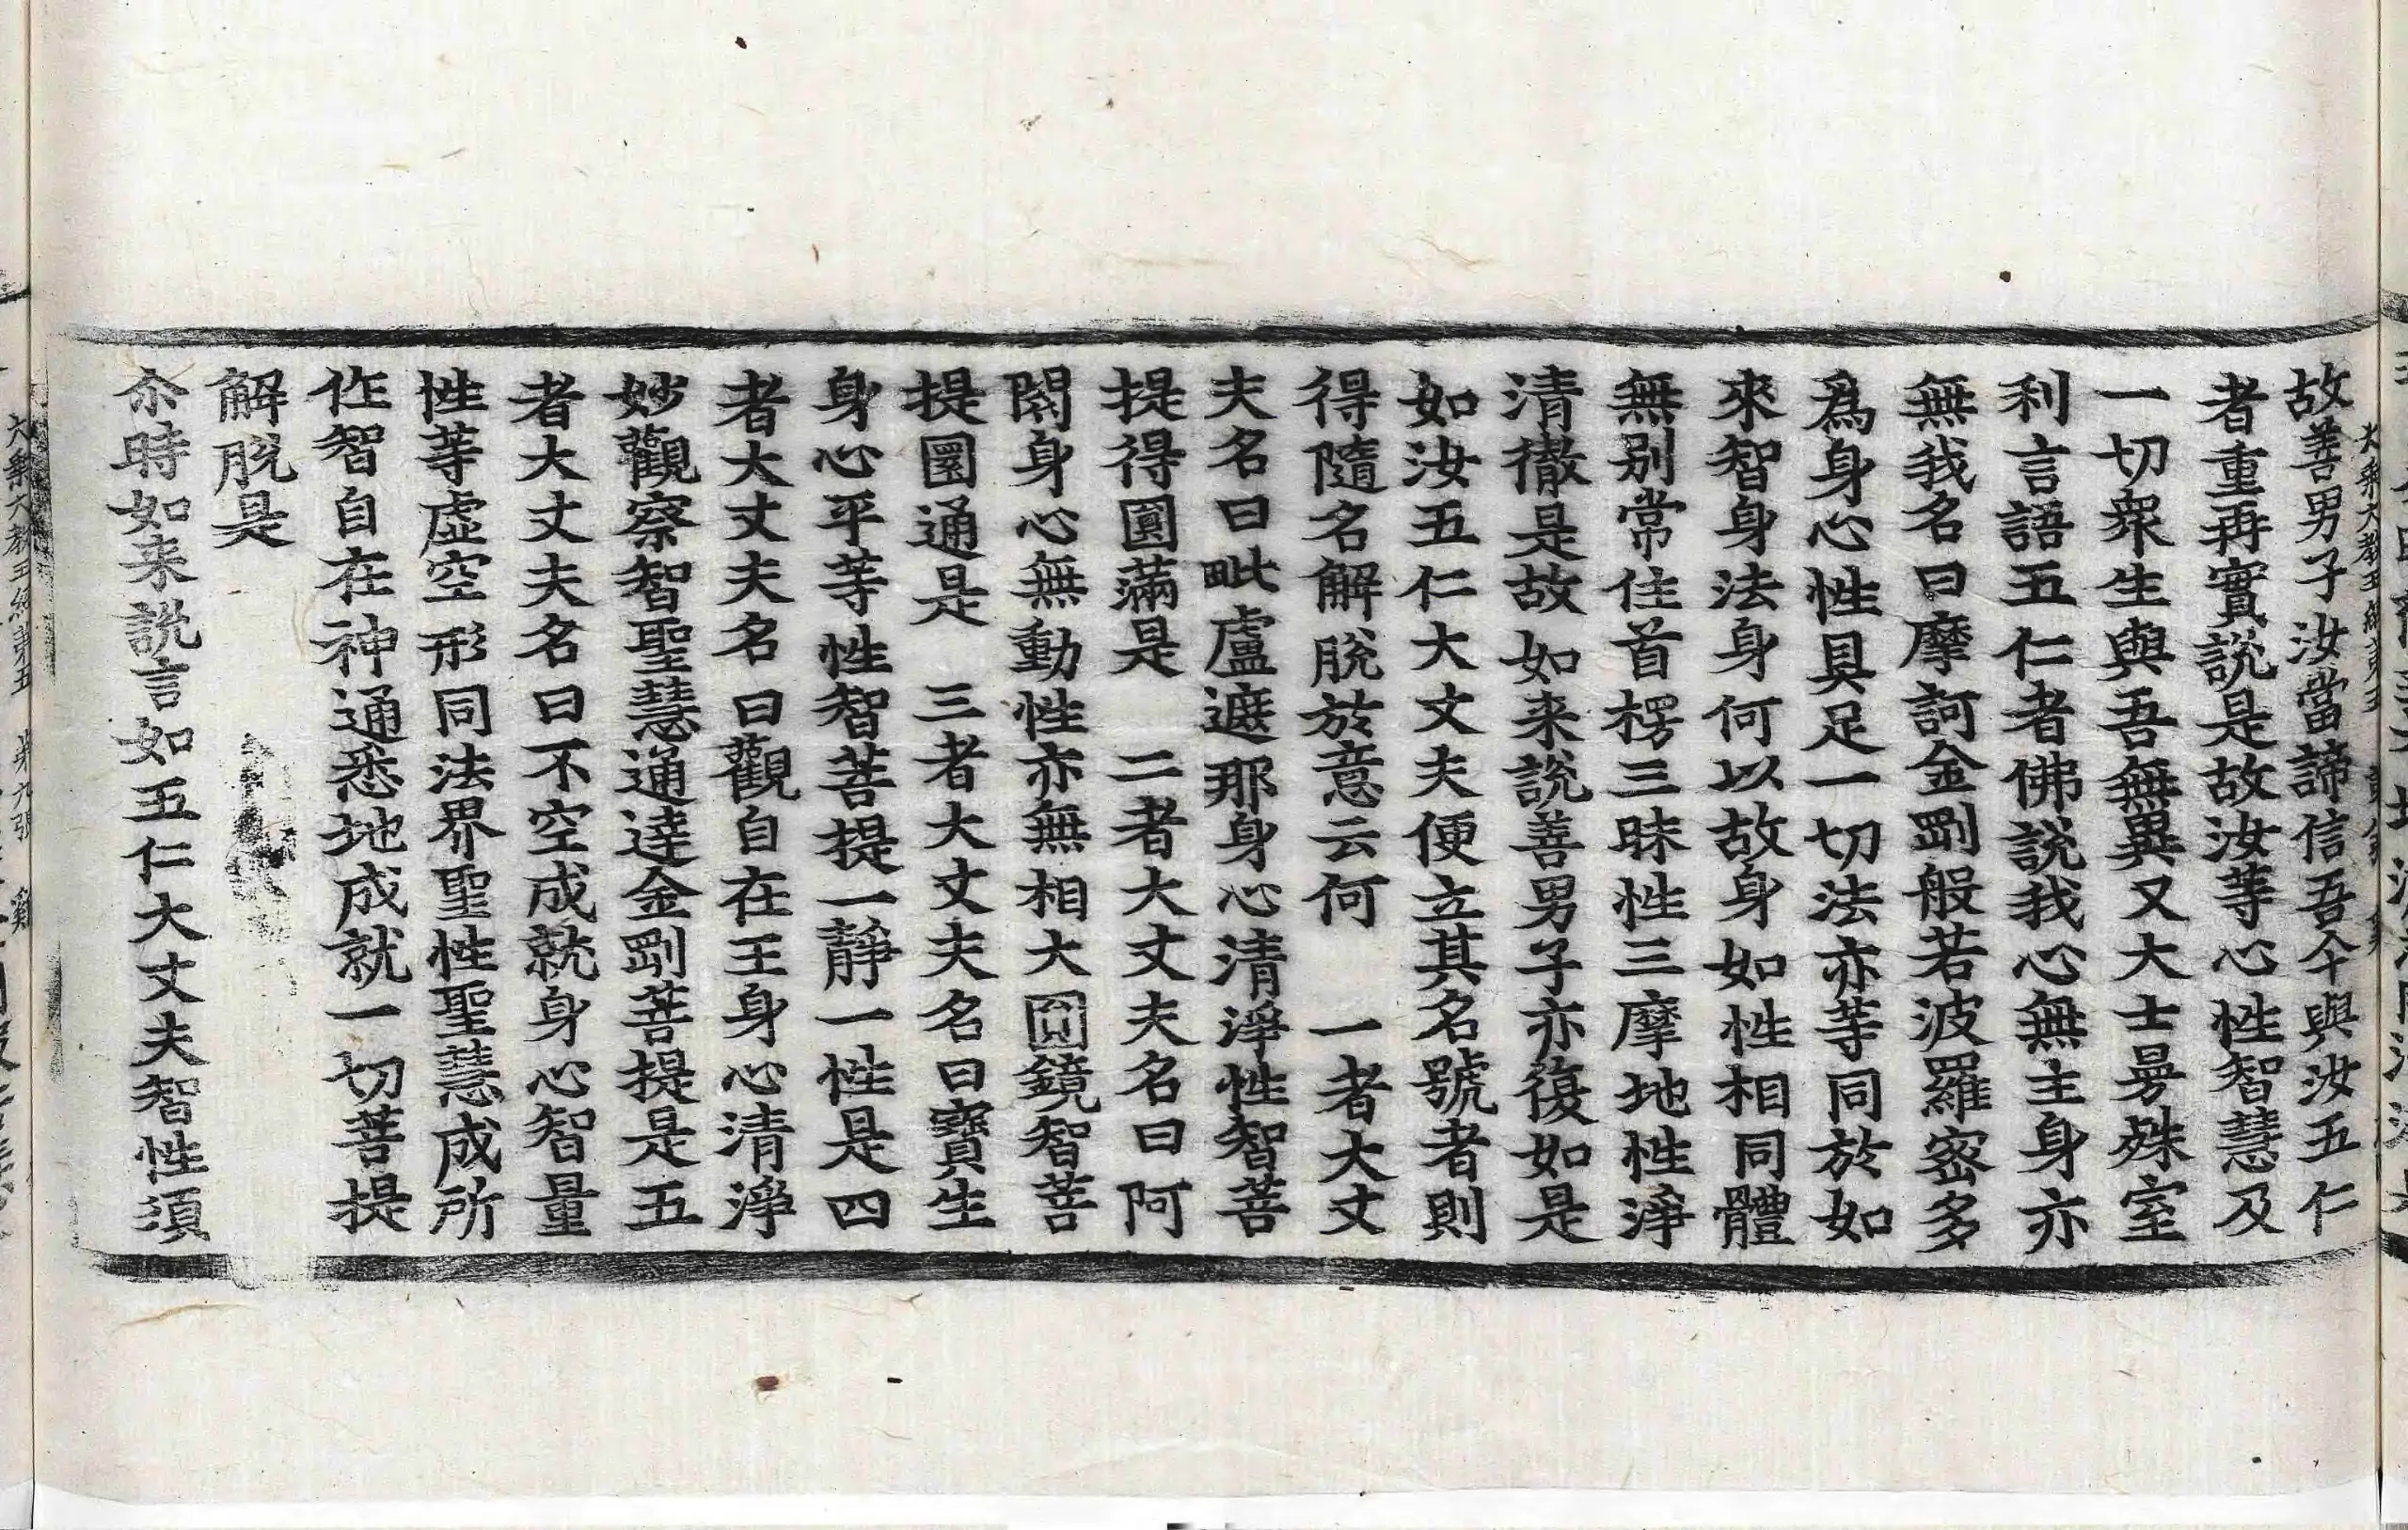 故善男子汝當諦信吾今與汝五仁
者重再實説是故汝等心性智慧及
一切衆生與吾無異又大士曼殊室
利言語五仁者佛説我心無主身亦
無我名曰摩訶金剛般若波羅蜜多
爲身心性具足一切法亦等同於如
來智身法身何以故身如性相同體
無別常住首楞三昧性三摩地性淨
清徹是故如来説善男子亦復如是
如汝五仁大丈夫便立其名號者則
得隨名解脱於意云何　一者大丈
夫名曰毗盧遮那身心清淨性智菩
提得圓滿是　二者大丈夫名曰阿
閦身心無動性亦無相大圓鏡智菩
提圓通是　三者大丈夫名曰寶生
身心平等性智菩提一靜一性是四
者大丈夫名曰觀自在王身心清淨
妙觀察智聖慧通達金剛菩提是五
者大丈夫名曰不空成就身心智量
性等虚空形同法界聖性聖慧成所
作智自在神通悉地成就一切菩提
解脱是
尒時如来説言如五仁大丈夫智性須
大乘大教王經第五　第九張　雞